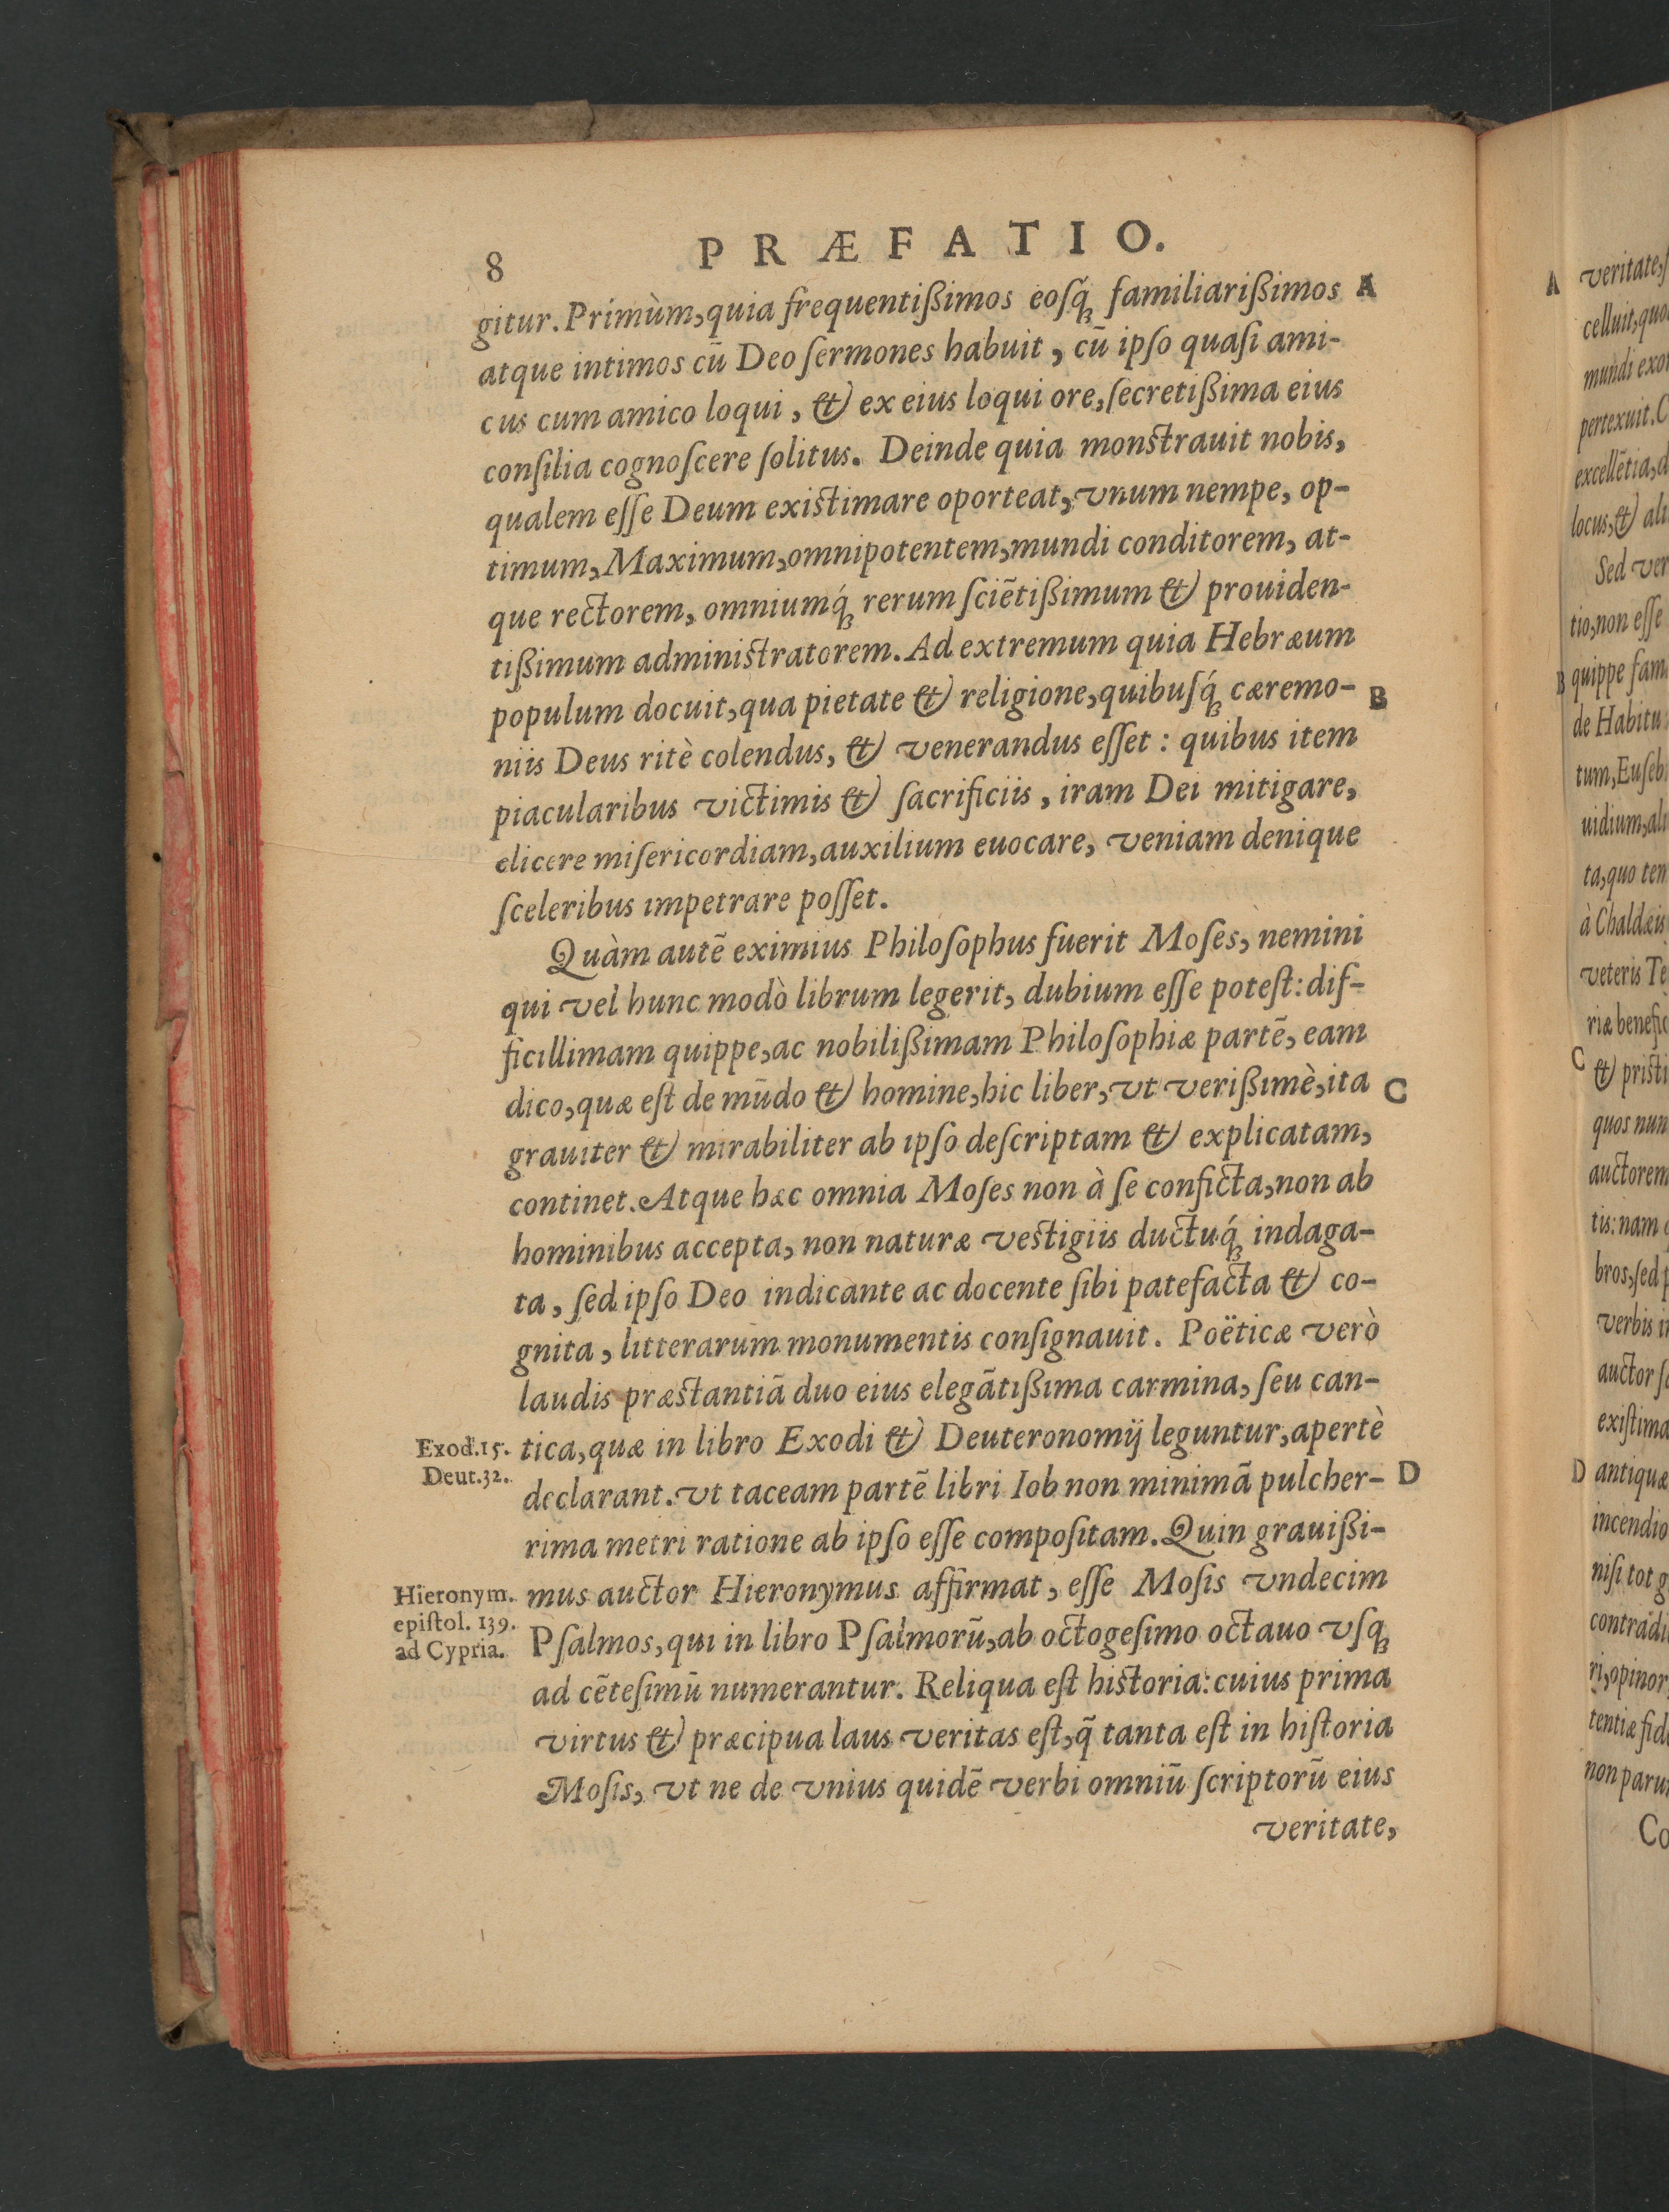 8 PRÆFATIO.
gitur. Primùm, quia frequentißimos eoſq́; familiarißimos A
atque intimos cū Deo ſermones habuit, cū ipſo quaſi ami-
cus cum amico loqui, & ex eius loqui ore, ſecretißima eius
conſilia cognoſcere ſolitus. Deinde quia monſtrauit nobis,
qualem eſſe Deum exiſtimare oporteat, vnum nempe, op-
timum, Maximum, omnipotentem, mundi conditorem, at-
que rectorem, omniumq́; rerum ſciētißimum & prouiden-
tißimum adminiſtratorem. Ad extremum quia Hebræum
populum docuit, qua pietate & religione, quibuſq́; cæremo- B
niis Deus ritè colendus, & venerandus eſſet: quibus item
piacularibus victimis & ſacrificiis, iram Dei mitigare,
elicere miſericordiam, auxilium euocare, veniam denique
ſceleribus impetrare poſſet.
Quàm autē eximius Philoſophus fuerit Moſes, nemini
qui vel hunc modò librum legerit, dubium eſſe poteſt: dif-
ficillimam quippe, ac nobilißimam Philoſophiæ partē, eam
dico, quæ eſt de mūdo & homine, hic liber, vt verißimè, ita C
grauiter & mirabiliter ab ipſo deſcriptam & explicatam,
continet. Atque hæc omnia Moſes non à ſe conficta, non ab
hominibus accepta, non naturæ veſtigiis ductuq́; indaga-
ta, ſed ipſo Deo indicante ac docente ſibi patefacta & co-
gnita, litterarum monumentis conſignauit. Poëticæ verò
laudis præſtantiā duo eius elegātißima carmina, ſeu can-
Exod.15. tica, quæ in libro Exodi & Deuteronomij leguntur, apertè
Deut.32.
declarant. vt taceam partē libri Iob non minimā pulcher- D
rima metri ratione ab ipſo eſſe compoſitam. Quin grauißi-
Hieronym. mus auctor Hieronymus affirmat, eſſe Moſis vndecim
epiſtol. 139.
ad Cypria. Pſalmos, qui in libro Pſalmorū, ab octogeſimo octauo vſq;
ad cēteſimū numerantur. Reliqua eſt hiſtoria: cuius prima
virtus & præcipua laus veritas eſt, q̃ tanta eſt in hiſtoria
Moſis, vt ne de vnius quidē verbi omniū ſcriptorū eius
veritate,
A veritate,
celluit, 
mundi
pertexuit.
excellētia,
locus, &
Sed
tio, non eſſe
B quippe
de
tum,
uidium,
ta, quo
à Chaldæis
veteris
riæ
C & 
quos
auctorem
tis: nam
bros, ſed
verbis
auctor
D antiquæ
incendio
niſi tot
ri, opinor
tentiæ
non